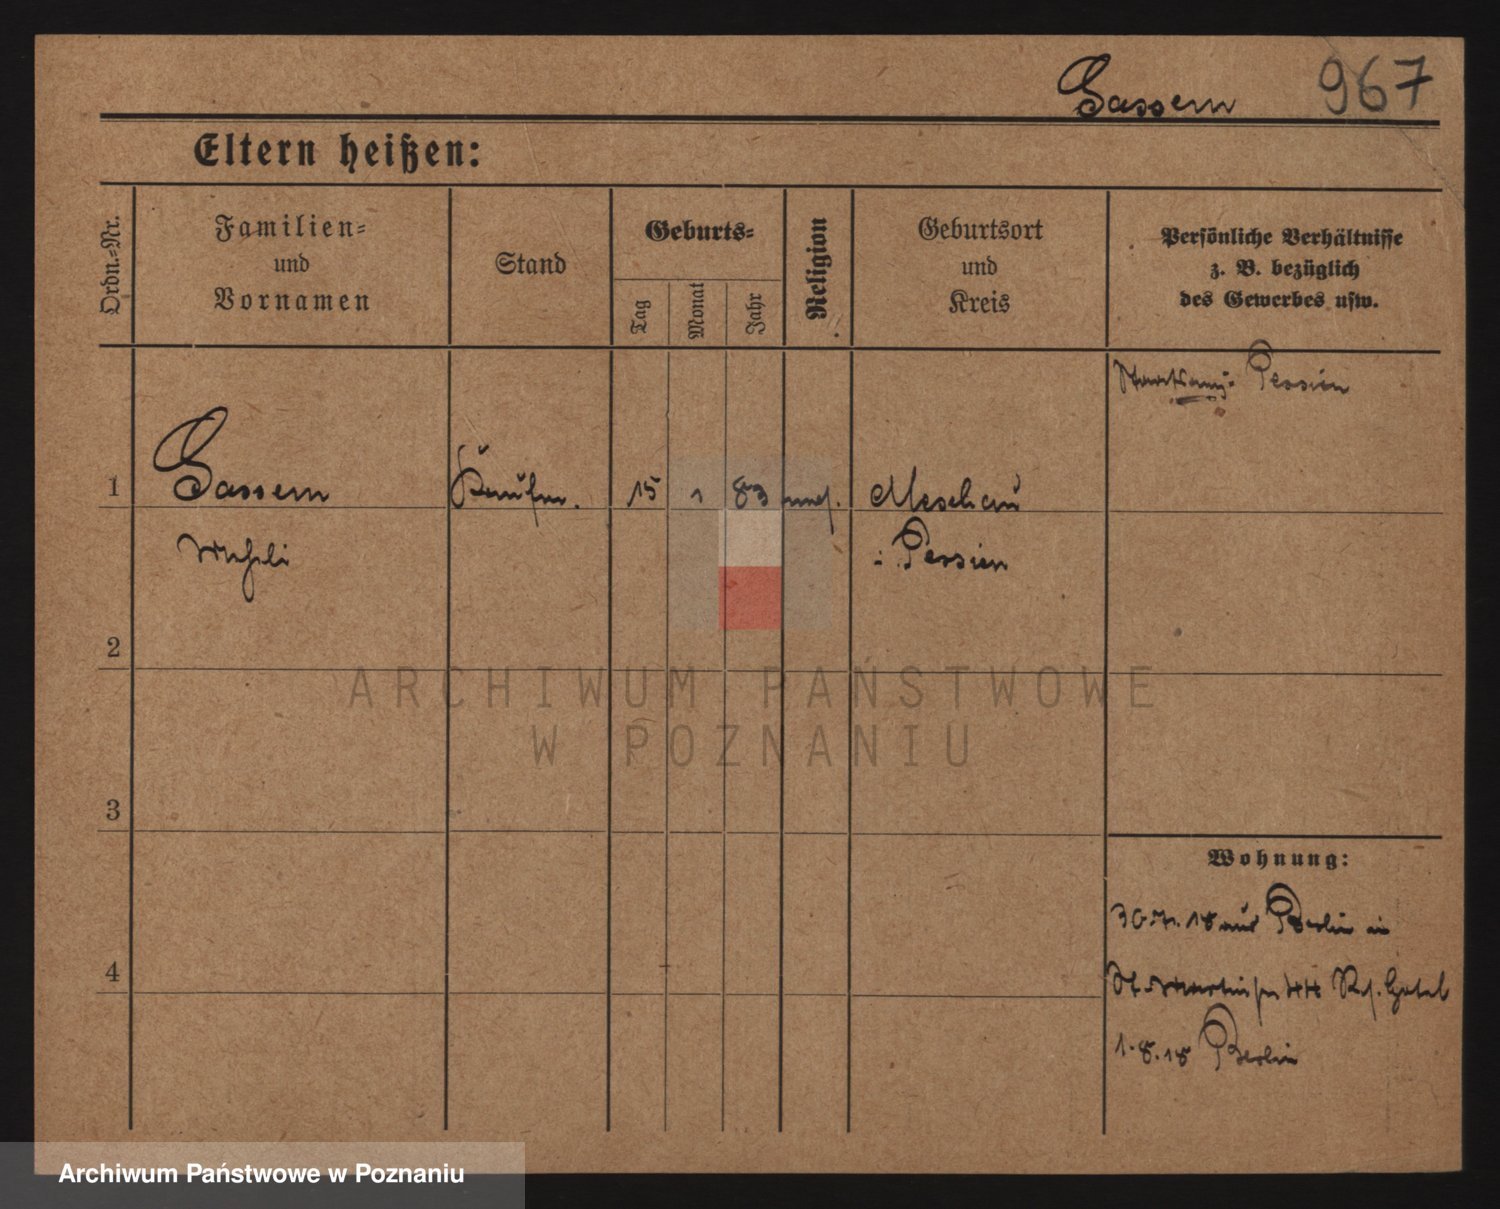 Gassem 967
Eltern heißen:
Ordn.-Nr.
Familien-
und
Vornamen
Stand
Geburts-
Tag
Monat
Jahr
Religion
Geburtsort
und
Kreis
Persönliche Verhältnisse
z. B. bezüglich
des Gewerbes usw.
Persien
1 Gassem Kaufm. 15 1 83 Meschau
i. Persien
2
3
4
Wohnung:
30.7.18 aus Berlin in
St. Martinstr Hotel
1.8.18 Berlin
ARCHIWUM PAŃSTWOWE
W POZNANIU
Archiwum Państwowe w Poznaniu